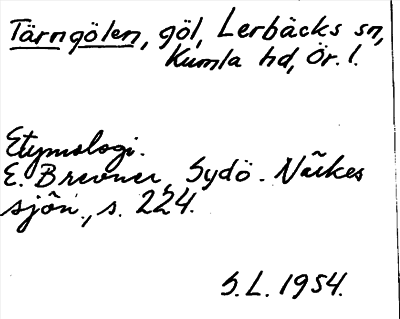 Tärngölen, göl, Lerbäcks sn,
Kumla hd, Ör. l.
Etymologi.
E. Brevner, Sydö. Närkes
sjön., s. 224.
S.L. 1954.